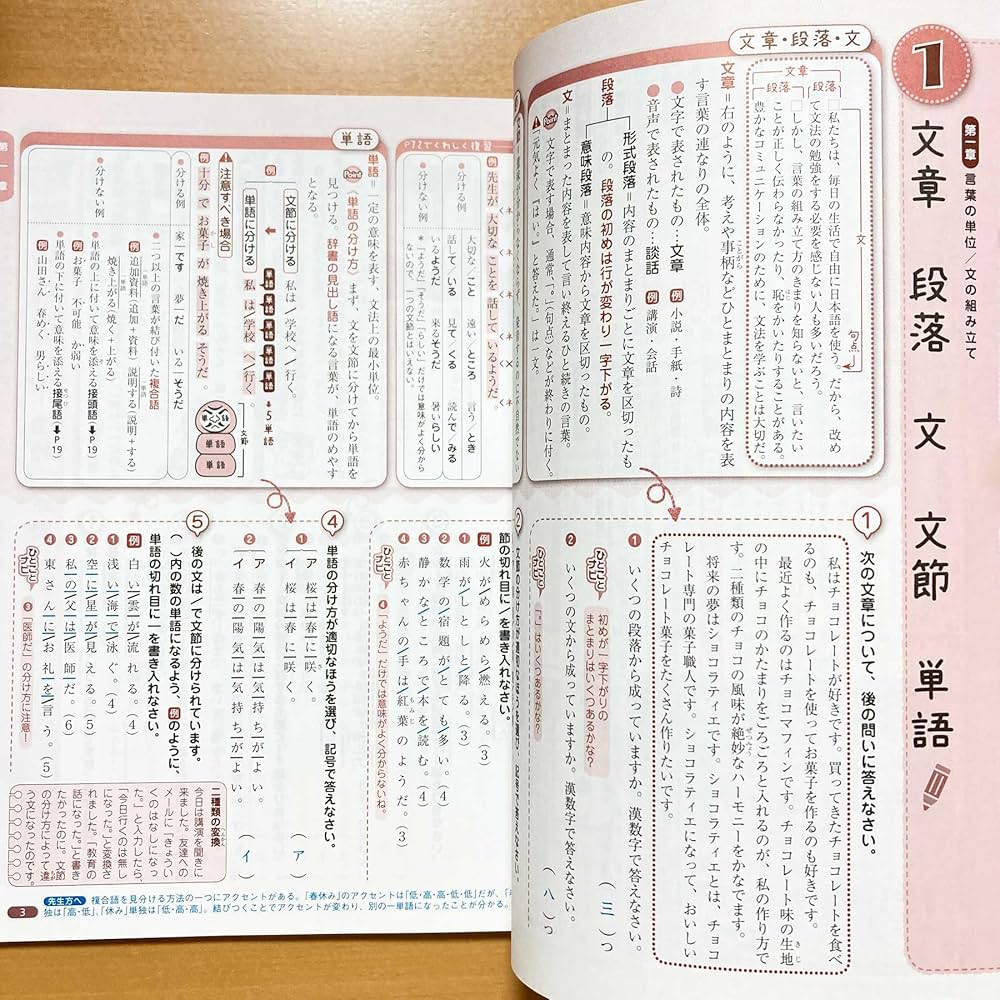 1
第一章 言葉の単位/文の組み立て
文章 段落 文 文節 単語
文章・段落・文
文章
段落
段落
文
句点
私たちは、毎日の生活で自由に日本語を使う。だから、改め
て文法の勉強をする必要を感じない人も多いだろう。
しかし、言葉の組み立て方のきまりを知らないと、言いたい
ことが正しく伝わらなかったり、恥をかいたりすることがある。
豊かなコミュニケーションのために、文法を学ぶことは大切だ。
文章=右のように、考えや事柄などひとまとまりの内容を表
す言葉の連なりの全体。
文字で表されたもの…文章 例 小説・手紙・詩
音声で表されたもの…談話 例 講演・会話
段落
形式段落=内容のまとまりごとに文章を区切ったも
の。段落の初めは行が変わり一字下がる。
意味段落=意味内容から文章を区切ったもの。
文=まとまった内容を表して言い終えるひと続きの言葉。
Point 文字で表す場合、通常、「。」(句点)などが終わりに付く。
「元気よく『はい。』と答えた。」は一文。
1 次の文章について、後の問いに答えなさい。
私はチョコレートが好きです。買ってきたチョコレートを食べ
るのも、チョコレートを使ってお菓子を作るのも好きです。
最近よく作るのはチョコマフィンです。チョコレート味の生地
の中にチョコのかたまりをごろごろと入れるのが、私の作り方で
す。二種類のチョコの風味が絶妙なハーモニーをかなでます。
将来の夢はショコラティエです。ショコラティエとは、チョコ
レート専門の菓子職人です。ショコラティエになって、おいしい
チョコレート菓子をたくさん作りたいです。
1 いくつの段落から成っていますか。漢数字で答えなさい。
(三)つ
ひとことナビ 初めが一字下がりの
まとまりはいくつあるかな?
2 いくつの文から成っていますか。漢数字で答えなさい。
(八)つ
ひとことナビ 「。」はいくつあるかな?
2
P72でくわしく復習
例 先生が 大切な ことを 話して いるようだ
大切な/こと 遠い/ところ 言う/とき
話して/いる 見て/くる 読んで/みる
いるようだ 来るそうだ 暑いらしい
*「ようだ」「そうだ」「らしい」だけでは意味がよく分から
ないので、一つの文節とはいえない。
単語
単語=一定の意味を表す、文法上の最小単位。
Point 〔単語の分け方〕 まず、文を文節に分けてから単語を
見つける。辞書の見出し語になる言葉が、単語のめやす
となる。
例
文節に分ける 私は/学校へ/行く。
単語に分ける 私|は|学校|へ|行く。
単語 単語 単語 単語 単語 5単語
注意すべき場合
例 十分 で お菓子 が 焼き上がる そうだ。
文節
単語
単語
分ける例 家|です 夢|だ いる|そうだ
分けない例
二つ以上の言葉が結び付いた複合語
例 追加資料(追加+資料) 説明する(説明+する)
焼き上がる(焼く+上がる)
単語の上に付いて意味を添える接頭語(P19)
例 お菓子 不可能 か弱い
単語の下に付いて意味を添える接尾語(P19)
例 山田さん 春めく 男らしい
第一章
節の切れ目に/を書き入れなさい。
例 火が/めらめら/燃える。(3)
1 雨が/しとしと/降る。(3)
2 数学の/宿題が/とても/多い。(4)
3 静かな/ところで/本を/読む。(4)
4 赤ちゃんの/手は/紅葉のようだ。(3)
ひとことナビ 4「ようだ」だけでは意味がよく分からないね。
4 単語の分け方が適切なほうを選び、記号で答えなさい。
1 ア 桜|は|春|に|咲く。
イ 桜は|春に|咲く。
(ア)
2 ア 春|の|陽気|は|気持ち|が|よい。
イ 春|の|陽気|は|気持ち|が|よい。
(イ)
5 後の文は/で文節に分けられています。
( )内の数の単語になるよう、例のように、
単語の切れ目に|を書き入れなさい。
例 白い/雲|が/流れる。(4)
1 浅い/海|で/泳ぐ。(4)
2 空|に/星|が/見える。(5)
3 私|の/父|は/医師|だ。(6)
4 東さん|に/お礼|を/言う。(5)
ひとことナビ 3「医師だ」の分け方に注意!
二種類の変換
今日は講演を聞きに
来ました。友達への
メールに「きょうい
くのはなしになっ
た。」と入力したら、
「今日行くのは無し
になった。」と変換さ
れました。「教育の
話になった。」と書き
たかったのに。文節
の分け方によって違
う文になったのです。
先生方へ 複合語を見分ける方法の一つにアクセントがある。「春休み」のアクセントは「低・高・高・低・低」だが、
独は「高・低」、「休み」単独は「低・高・高」。結びつくことでアクセントが変わり、別の一単語になったことが分かる。
3